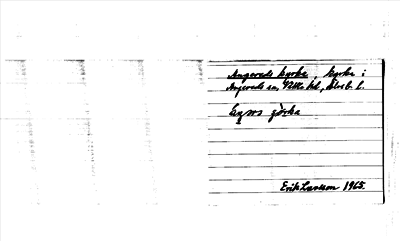 Angereds kyrka, kyrka i
Angereds sn, Vättle hd, Älvsb. l.
kyrka
Erik Larsson 1965.